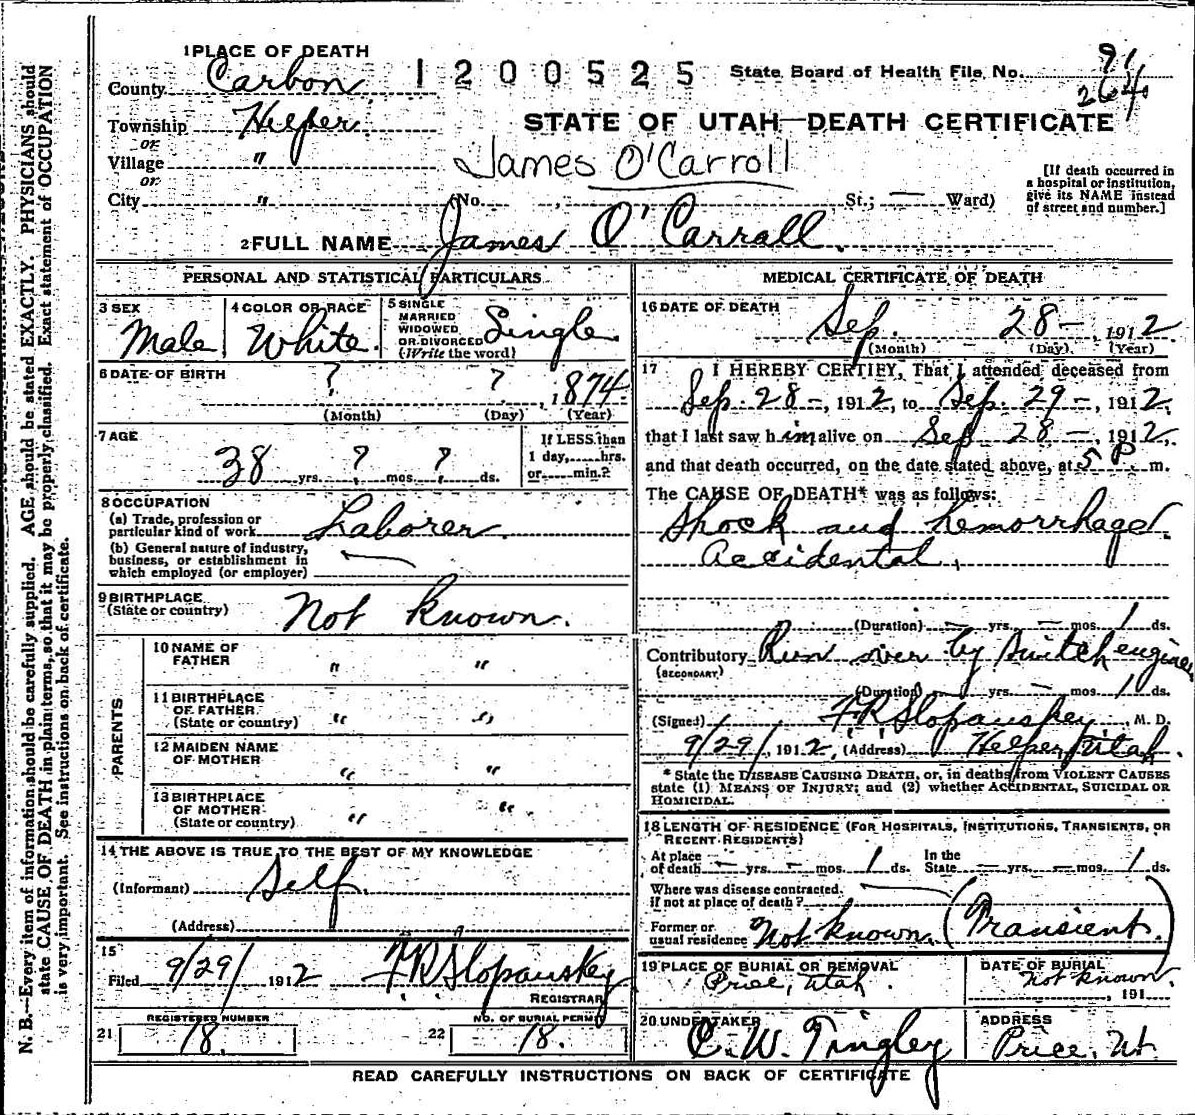 1 PLACE OF DEATH
County Carbon
1200525
State Board of Health File No. 91
264
Township Helper
or
Village "
or
City "
STATE OF UTAH—DEATH CERTIFICATE
James O'Carroll
(No. , St.; — Ward)
[If death occurred in a hospital or institution, give its NAME instead of street and number.]
2 FULL NAME James O'Carrall.
PERSONAL AND STATISTICAL PARTICULARS
3 SEX
Male
4 COLOR OR RACE
White.
5 SINGLE MARRIED WIDOWED OR DIVORCED (Write the word)
Single
6 DATE OF BIRTH
? ? , 1874
(Month) (Day) (Year)
7 AGE
38 yrs. ? mos. ? ds.
If LESS than 1 day, hrs. or min.?
8 OCCUPATION
(a) Trade, profession or particular kind of work Laborer.
(b) General nature of industry, business, or establishment in which employed (or employer)
9 BIRTHPLACE (State or country) Not known.
PARENTS
10 NAME OF FATHER " "
11 BIRTHPLACE OF FATHER (State or country) " "
12 MAIDEN NAME OF MOTHER " "
13 BIRTHPLACE OF MOTHER (State or country) " "
14 THE ABOVE IS TRUE TO THE BEST OF MY KNOWLEDGE
(Informant) Self.
(Address)
15
Filed 9/29/ 1912 F.R. Slopanskey
REGISTRAR
REGISTERED NUMBER
21 18.
NO. OF BURIAL PERMIT
22 18.
MEDICAL CERTIFICATE OF DEATH
16 DATE OF DEATH
Sep. 28 — , 1912
(Month) (Day) (Year)
17 I HEREBY CERTIFY, That I attended deceased from
Sep. 28 —, 1912, to Sep. 29 —, 1912,
that I last saw h im alive on Sep 28 —, 1912,
and that death occurred, on the date stated above, at 5 P. m.
The CAUSE OF DEATH* was as follows:
Shock and hemorrhage.
Accidental.
(Duration) — yrs. — mos. 1 ds.
Contributory Run over by switch engine
(SECONDARY)
(Duration) — yrs. — mos. 1 ds.
(Signed) F.R. Slopanskey, M. D.
9/29/, 1912, (Address) Helper, Utah.
* State the DISEASE CAUSING DEATH, or, in deaths from VIOLENT CAUSES state (1) MEANS OF INJURY; and (2) whether ACCIDENTAL, SUICIDAL OR HOMICIDAL.
18 LENGTH OF RESIDENCE (FOR HOSPITALS, INSTITUTIONS, TRANSIENTS, OR RECENT RESIDENTS)
At place of death — yrs. — mos. 1 ds. In the State — yrs. — mos. 1 ds.
Where was disease contracted, if not at place of death?
Former or usual residence Not known. (Transient.)
19 PLACE OF BURIAL OR REMOVAL
Price, Utah.
DATE OF BURIAL
Not known.
, 191
20 UNDERTAKER
C. W. Tingley
ADDRESS
Price, Ut.
READ CAREFULLY INSTRUCTIONS ON BACK OF CERTIFICATE
N. B.—Every item of information should be carefully supplied. AGE should be stated EXACTLY. PHYSICIANS should
state CAUSE OF DEATH in plain terms, so that it may be properly classified. Exact statement of OCCUPATION
is very important. See instructions on back of certificate.